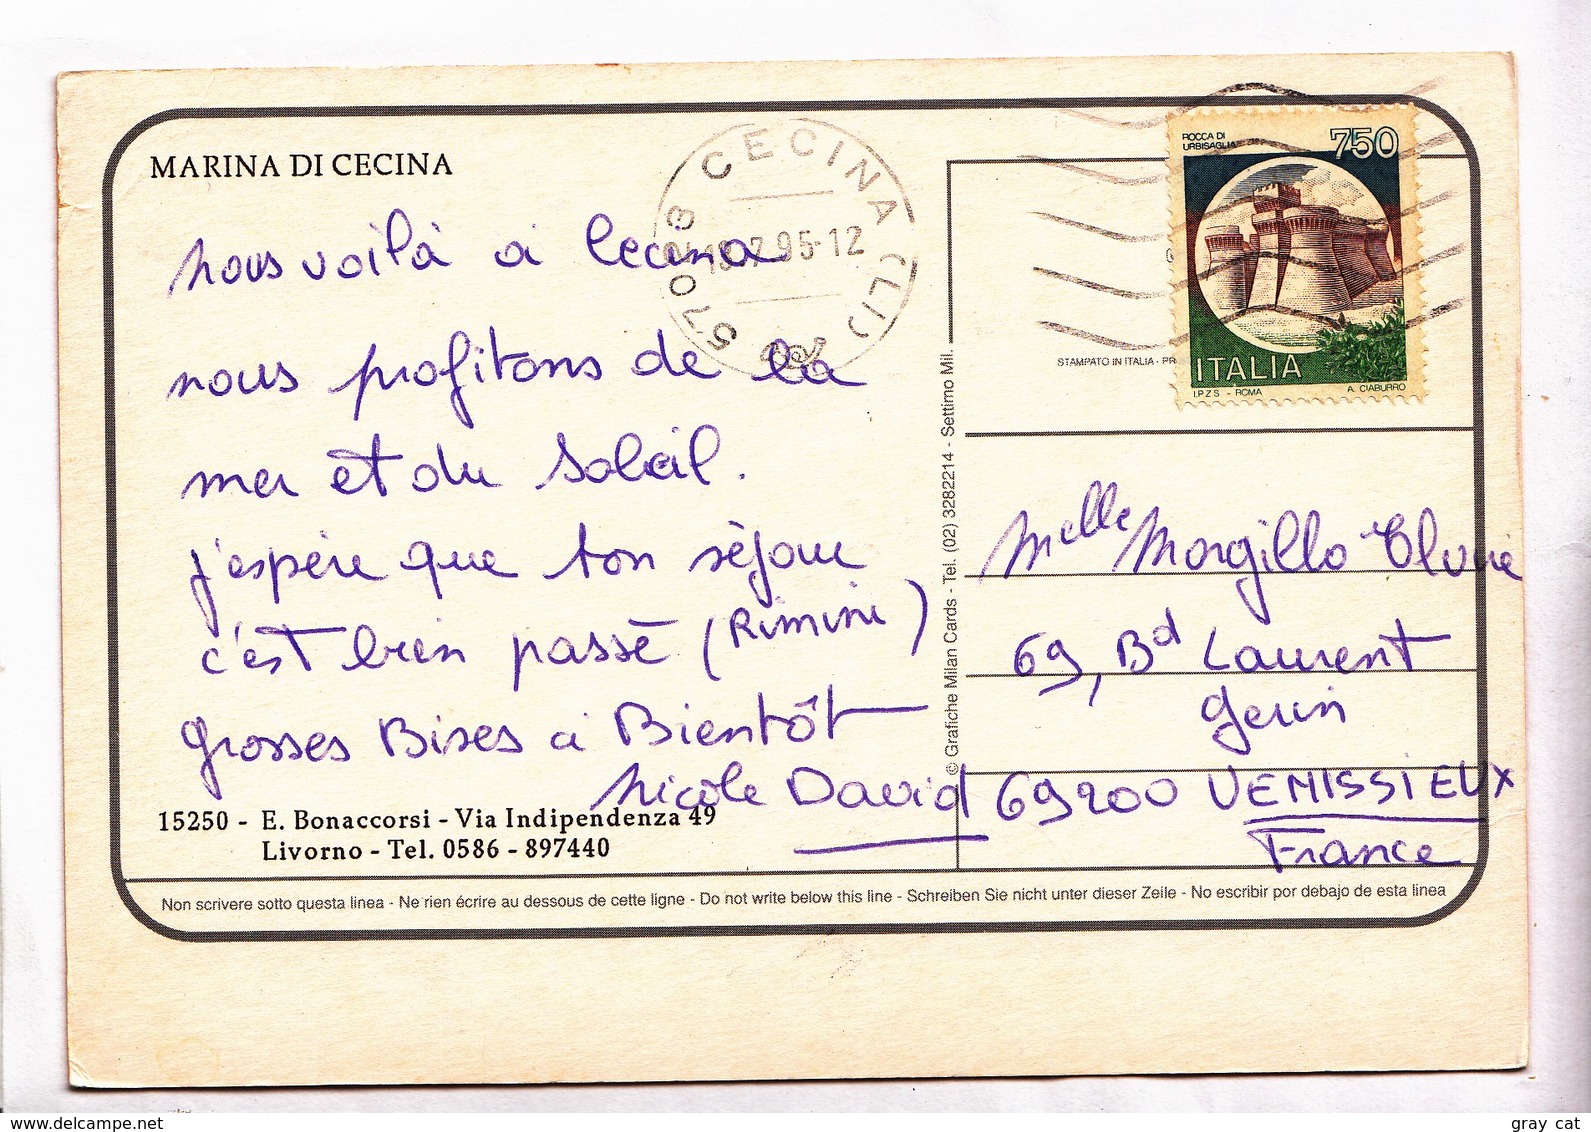 MARINA DI CECINA
nous voilà à Cecina
nous profitons de la
mer et du soleil.
j'espère que ton séjour
c'est bien passé (Rimini)
grosses Bises à Bientôt
Nicole David
15250 - E. Bonaccorsi - Via Indipendenza 49
Livorno - Tel. 0586 - 897440
Non scrivere sotto questa linea - Ne rien écrire au dessous de cette ligne - Do not write below this line - Schreiben Sie nicht unter dieser Zeile - No escribir por debajo de esta linea
57023 CECINA (LI)
7.95-12
© Grafiche Milan Cards - Tel. (02) 3282214 - Settimo Mil.
STAMPATO IN ITALIA - PR
ROCCA DI
URBISAGLIA
750
ITALIA
I.P.Z.S. - ROMA
A. CIABURRO
Melle Morgillo
69, Bd Laurent
Gerin
69200 VENISSIEUX
France
www.delcampe.net
gray cat